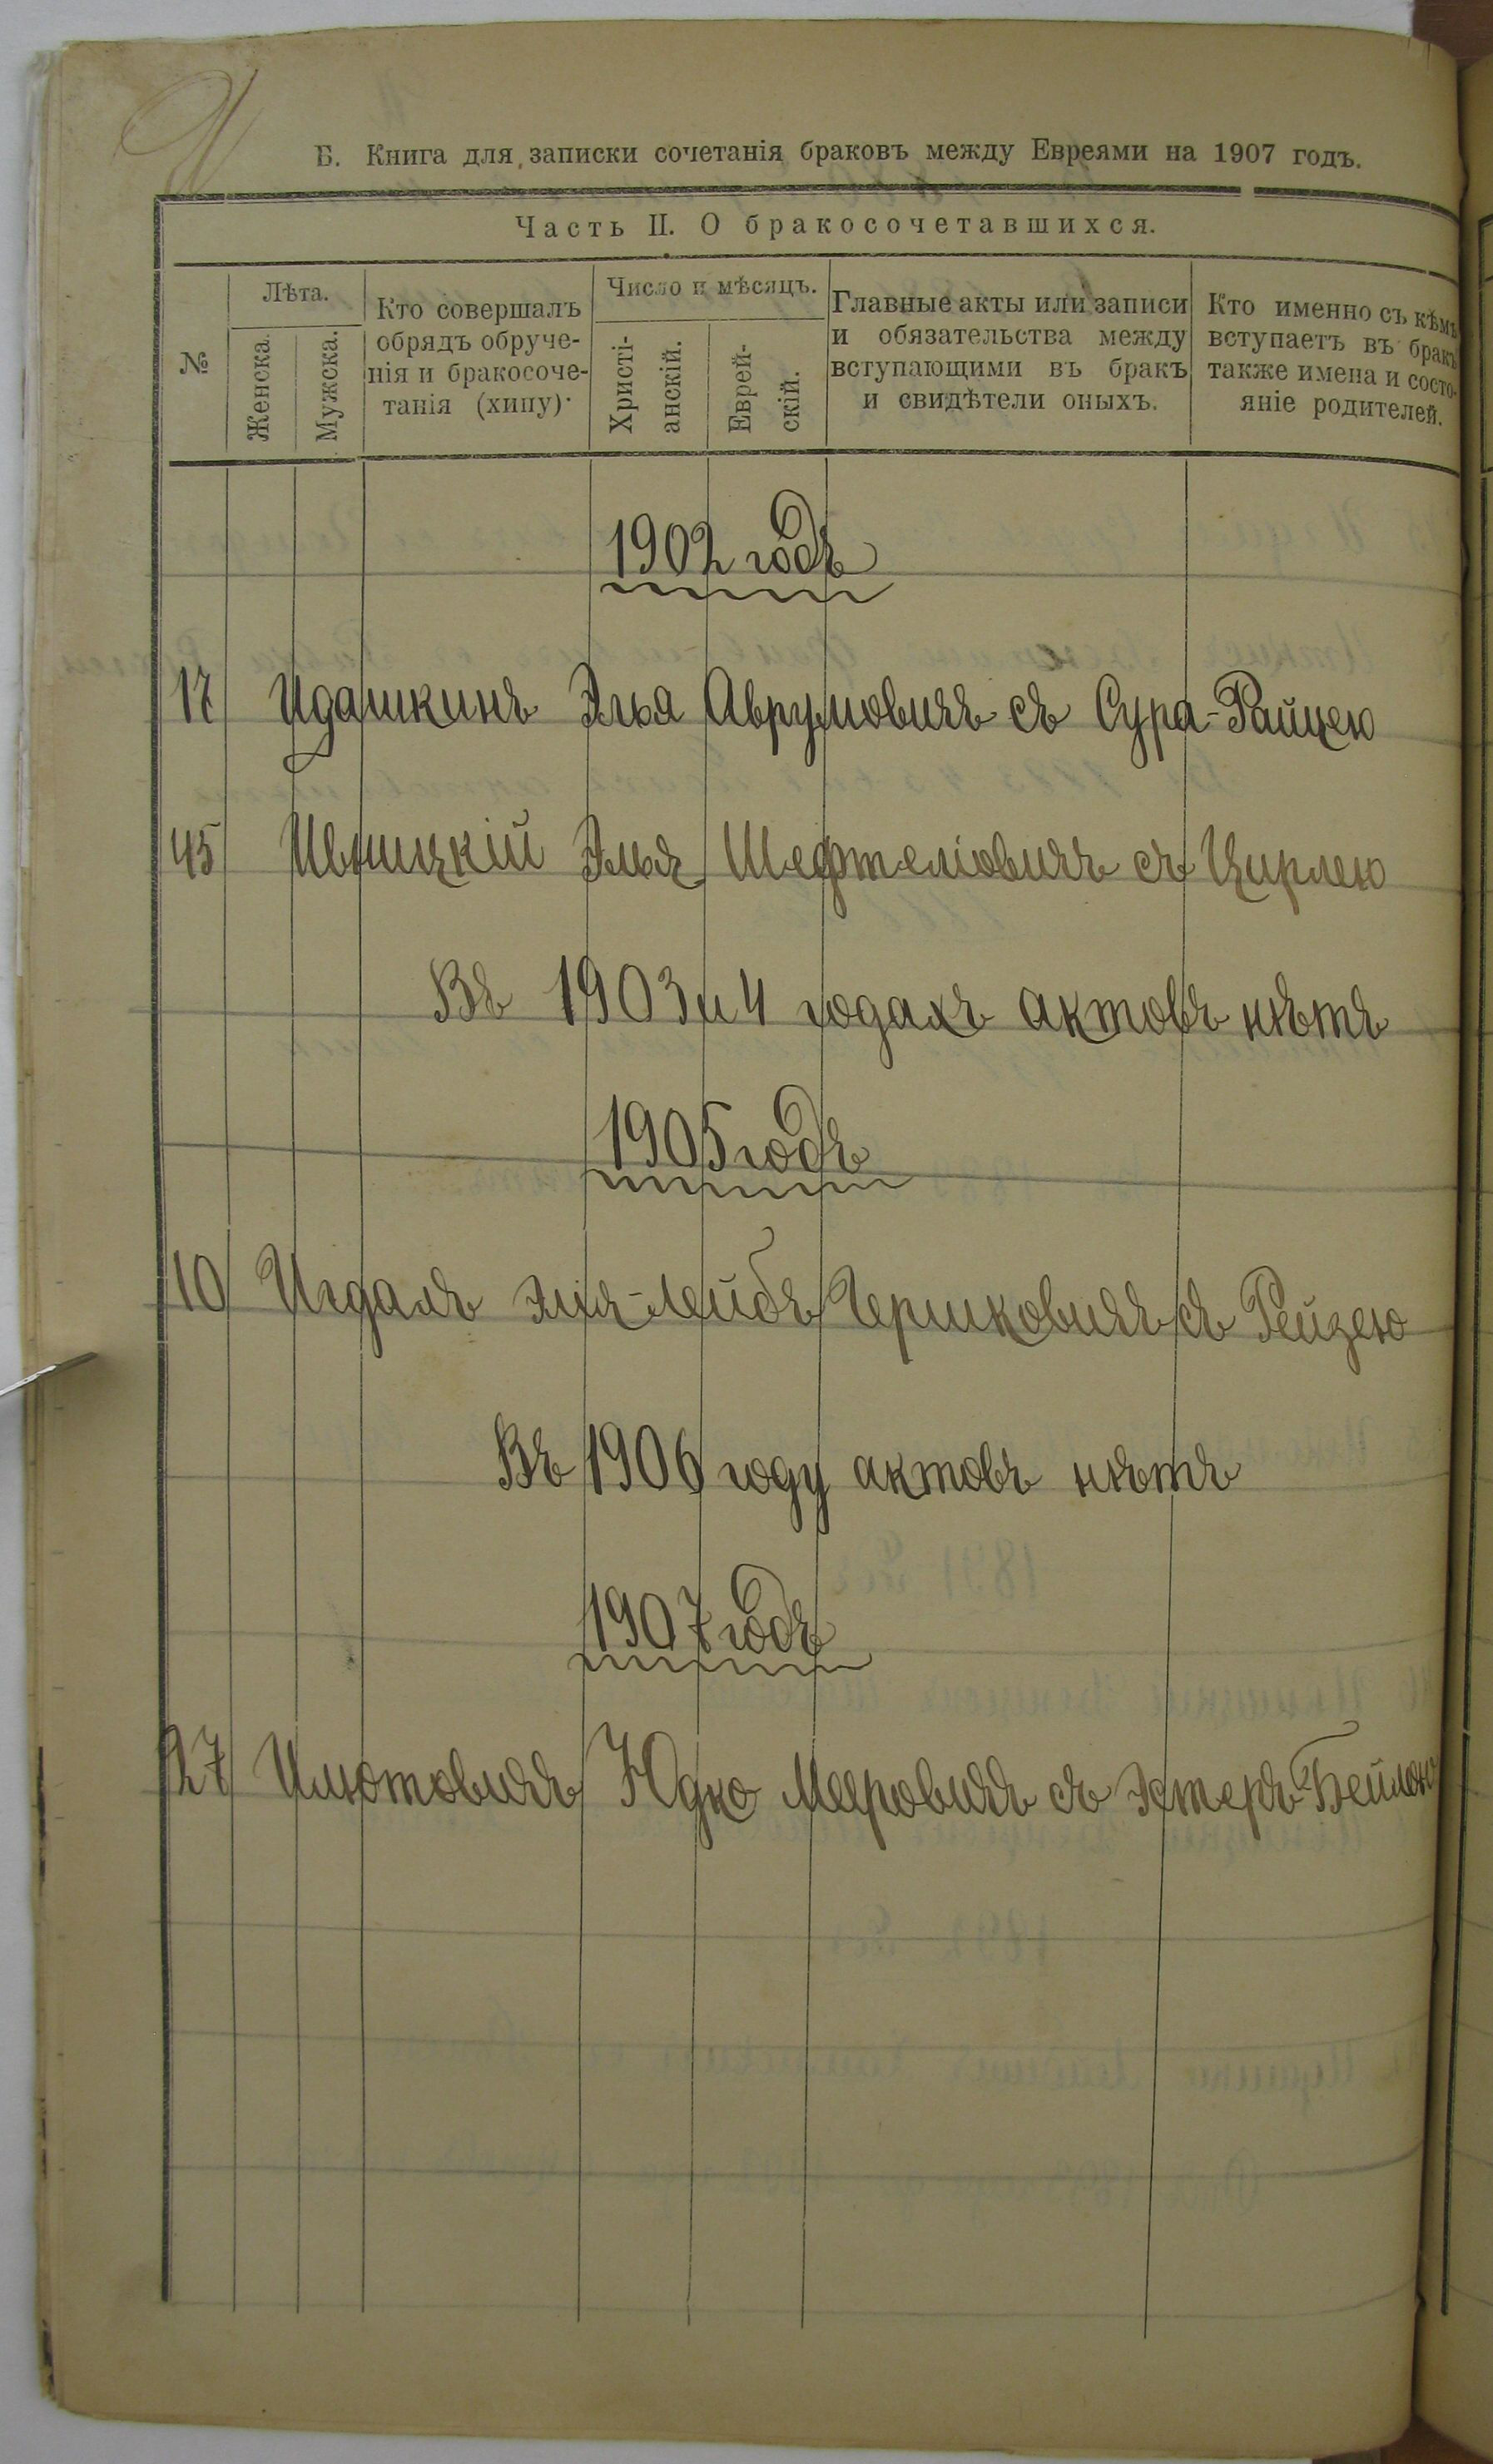 И
Б. Книга для записки сочетанія браковъ между Евреями на 1907 годъ.
Часть II. О бракосочетавшихся.
№
Лѣта.
Женска.
Мужска.
Кто совершалъ
обрядъ обруче-
нія и бракосоче-
танія (хипу)
Число и мѣсяцъ.
Христі-
анскій.
Еврей-
скій.
Главные акты или записи
и обязательства между
вступающими въ бракъ
и свидѣтели оныхъ.
Кто именно съ кѣмъ
вступаетъ въ бракъ
также имена и состо-
яніе родителей.
1902 годъ
17 Идашкинъ Элья Аврумовичъ съ Сура-Райцею
45 Ивницкій Элья Шефтеліовичъ съ Цирлею
Въ 1903 и 4 годахъ актовъ нѣтъ
1905 годъ
10 Игдалъ Элія-Лейбъ Гершковичъ съ Рейзею
Въ 1906 году актовъ нѣтъ
1907 годъ
27 Илютовичъ Юдко Мееровичъ съ Эстеръ-Бейлею